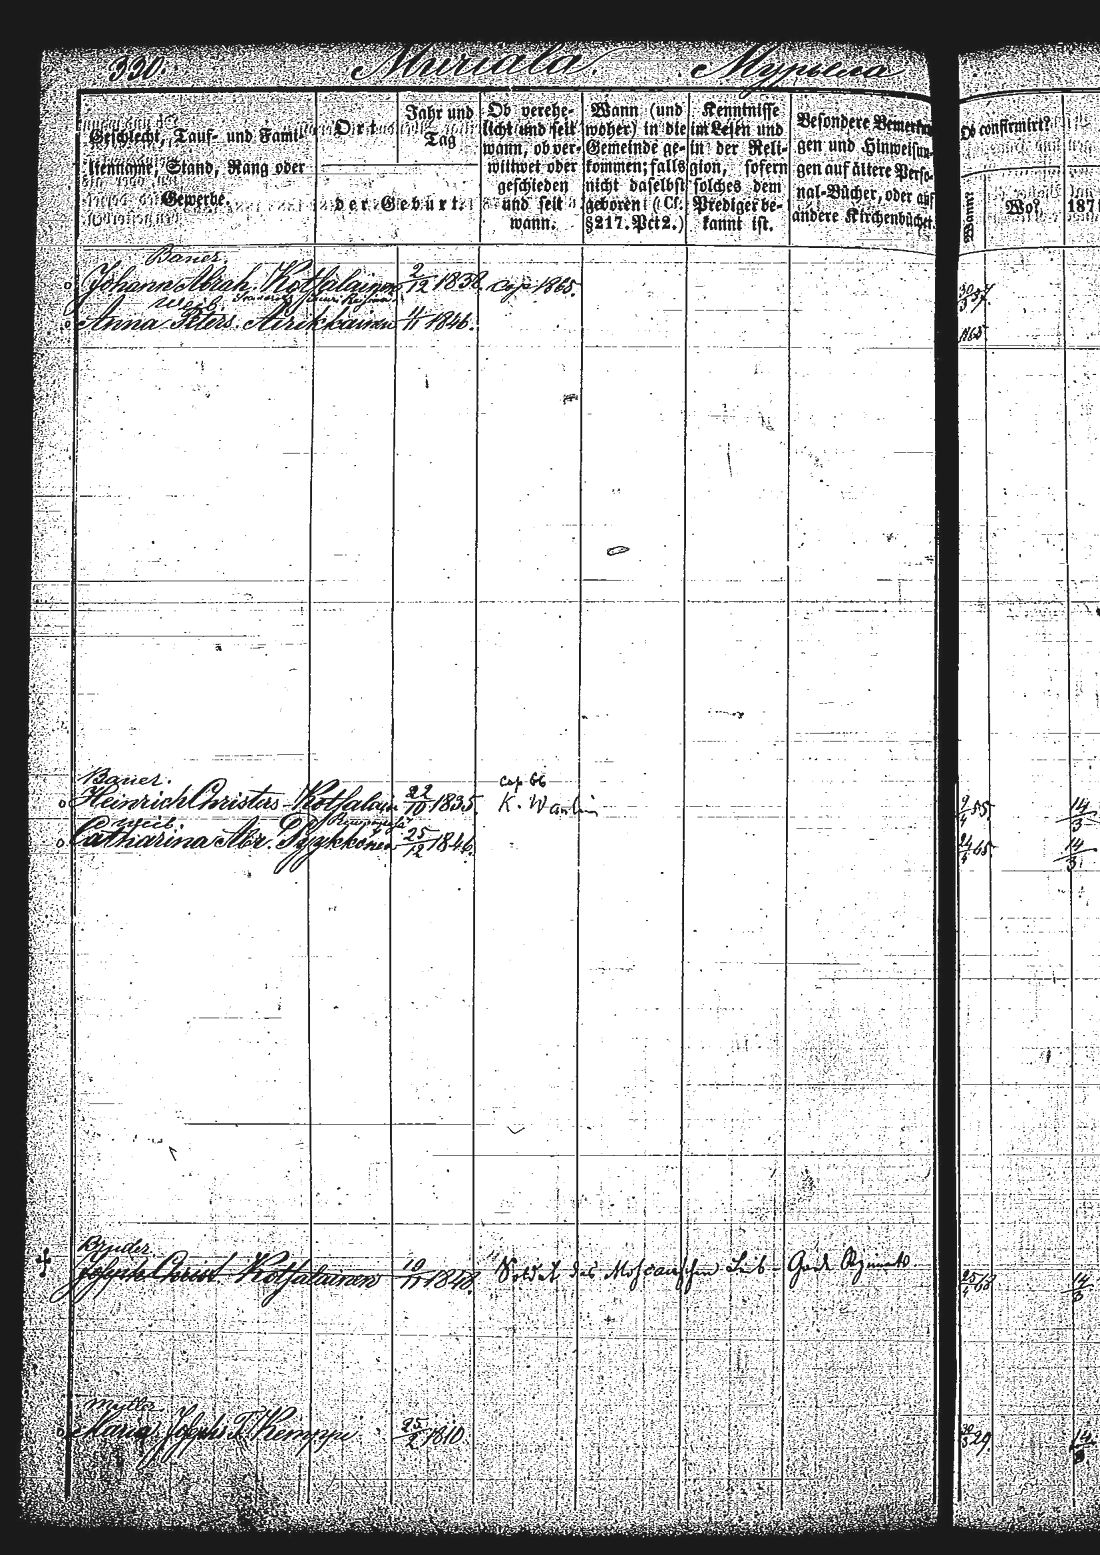 330. Muriala. Мурьела
Geschlecht, Tauf- und Familiennahme, Stand, Rang oder Gewerbe.
Ort
Jahr und Tag
der Geburt.
Ob verehelicht und seit wann, ob verwittwet oder geschieden und seit wann.
Wann (und woher) in die Gemeinde gekommen; falls nicht daselbst geboren (Cf. §217. Pct 2.)
Kenntnisse im Lesen und in der Religion, sofern solches dem Prediger bekannt ist.
Besondere Bemerkungen und Hinweisungen auf ältere Personal-Bücher, oder auf andere Kirchenbücher.
Ob confirmirt?
Wann?
Wo?
187
Bauer.
Johann Abrah. Kotsalainen 2/12 1838. cop. 1865. 30/3 57
Weib
Anna Peters. Airikkainen 4/11 1846. 1865
Bauer. cop 66
Heinrich Christus. Kotsalain 22/10 1835. K. 9/4 55 14/3
Weib.
Catharina Abr. Pyykkönen 25/12 1846. 24/4 65 14/3
Bruder.
Joseph Christ. Kotsalainen 19/11 1848. Soldat des Moskauschen Leib-Garde Regiments 14/3
Mutter
Maria Josephs T. Kemppi 25/2 1810. 29